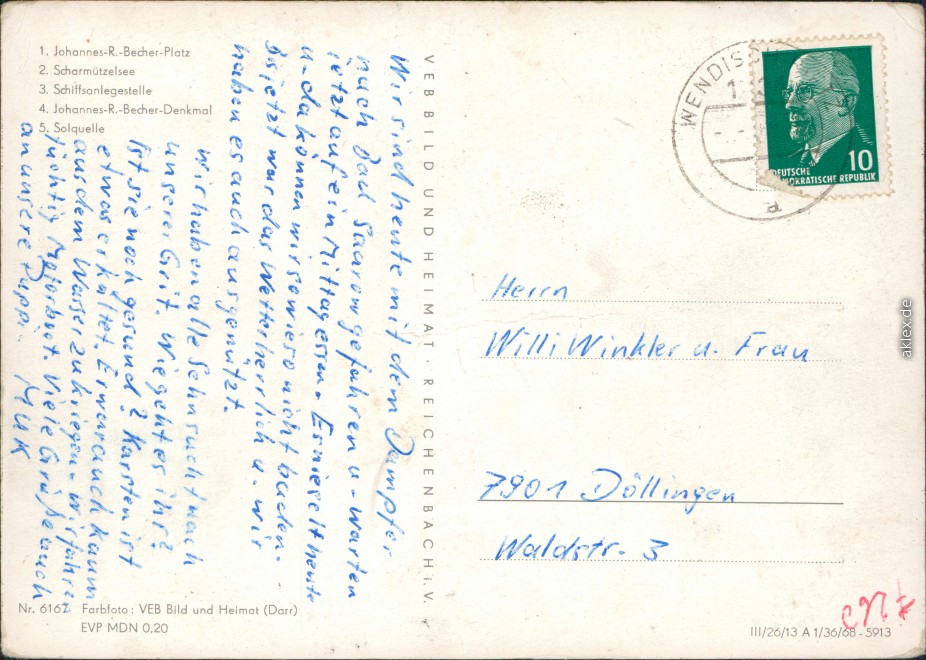 1. Johannes-R.-Becher-Platz
2. Scharmützelsee
3. Schiffsanlegestelle
4. Johannes-R.-Becher-Denkmal
5. Solquelle
Wir sind heute mit dem Dampfer
nach Bad Saarow gefahren u. warten
jetzt auf ein Mittagessen. Es nieselt heute
u. da können wir sowieso nicht baden.
Bis jetzt war das Wetter herrlich u. wir
haben es auch ausgenützt.
Wir haben alle Sehnsucht nach
unsere Grit. Wie geht es ihr?
Ist sie noch gesund? Karsten ist
etwas erkältet. Er war auch kaum
aus dem Wasser zu kriegen. Wir fahren
tüchtig Motorboot. Viele Grüße auch
an unsere Puppi. MUK
VEB BILD UND HEIMAT · REICHENBACH i. V.
WENDISCH
DEUTSCHE
DEMOKRATISCHE REPUBLIK
10
a
Herrn
Willi Winkler u. Frau
7901 Döllingen
Waldstr. 3
Nr. 6162 Farbfoto: VEB Bild und Heimat (Darr)
EVP MDN 0,20
III/26/13 A 1/36/68 - 5913
aklex.de